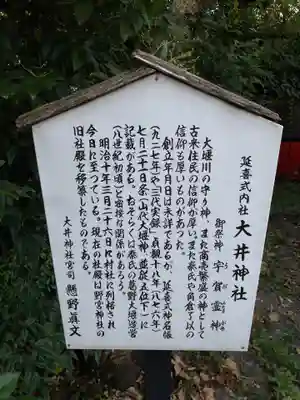 延喜式内社 大井神社
御祭神 宇賀霊神
大堰川の守り神、また商売繁盛の神として
古来住民の信仰が厚い。また秦氏や角倉了以の
信仰も厚いものがあった。
創立年月日は未詳であるが、延喜式神名帳
(九二七年)や三代実録(貞観十八(八七六)年
七月二十一日条「山代大堰神、並従五位下」に
記載がある。おそらくは秦氏の葛野大堰造営
(八世紀初頃)と密接な関係があろう。
明治十年三月二十六日に村社に列格され
今日に至っている。現在の社殿は野宮神社の
旧社殿を移築したものである。
大井神社宮司 懸野眞文